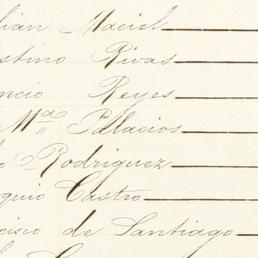 lian Maciel
stino Rivas
encio Reyes
Mª Palacios
o Rodriguez
quio Castro
cisco de Santiago